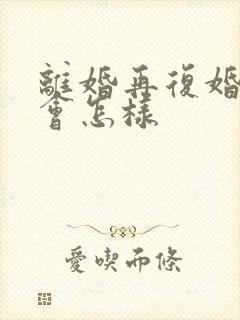 離婚再復婚
會怎樣
愛喫雨條